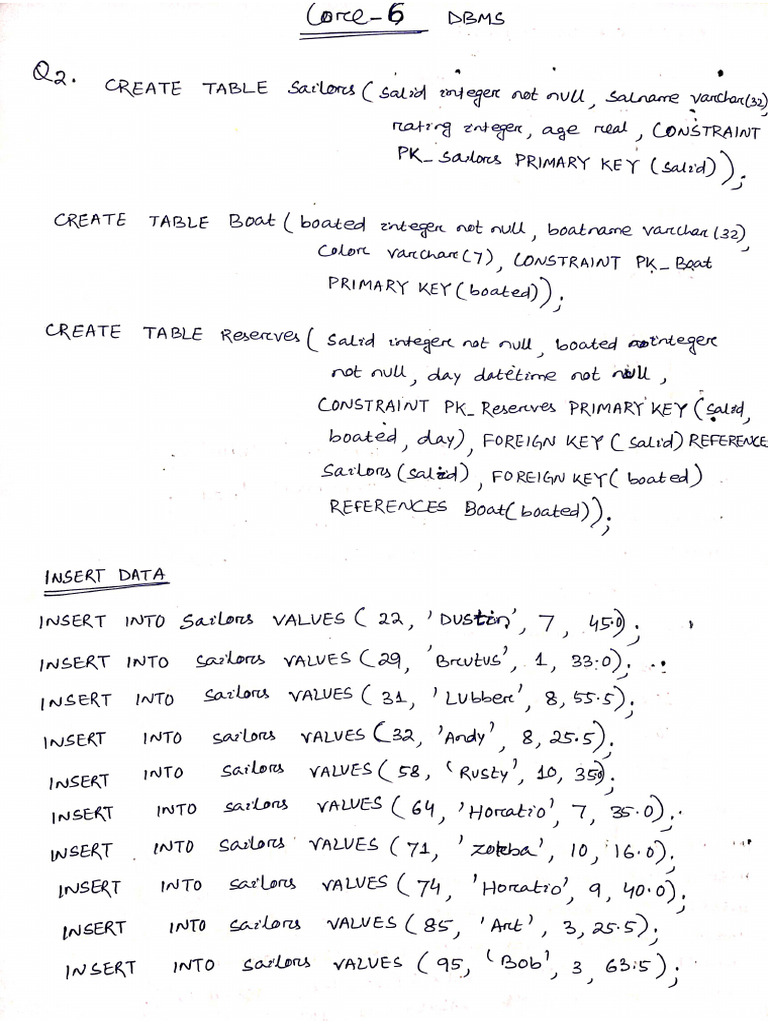 Core-6 DBMS
Q2. CREATE TABLE Sailors (salid integer not null, salname varchar(32)
rating integer, age real, CONSTRAINT
PK_Sailors PRIMARY KEY (salid));
CREATE TABLE Boat (boated integer not null, boatname varchar(32),
Color varchar(7), CONSTRAINT PK_Boat
PRIMARY KEY (boated));
CREATE TABLE Reserves (salid integer not null, boated integer
not null, day datetime not null,
CONSTRAINT PK_Reserves PRIMARY KEY (salid,
boated, day), FOREIGN KEY (salid) REFERENCE
Sailors (salid), FOREIGN KEY (boated)
REFERENCES Boat(boated));
INSERT DATA
INSERT INTO Sailors VALUES (22, 'Dustin', 7, 45.0);
INSERT INTO Sailors VALUES (29, 'Brutus', 1, 33.0);
INSERT INTO Sailors VALUES (31, 'Lubber', 8, 55.5);
INSERT INTO Sailors VALUES (32, 'Andy', 8, 25.5);
INSERT INTO Sailors VALUES (58, 'Rusty', 10, 350);
INSERT INTO Sailors VALUES (64, 'Horatio', 7, 35.0);
INSERT INTO Sailors VALUES (71, 'Zorba', 10, 16.0);
INSERT INTO Sailors VALUES (74, 'Horatio', 9, 40.0);
INSERT INTO Sailors VALUES (85, 'Art', 3, 25.5);
INSERT INTO Sailors VALUES (95, 'Bob', 3, 63.5);